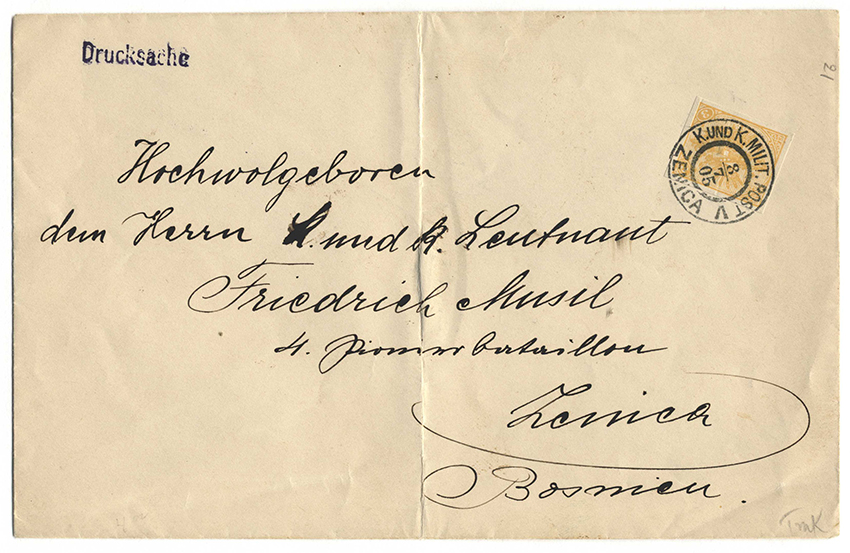 Drucksache
21
K. UND K. MILIT. POST V
ZENICA
8/7
05
Hochwolgeboren
dem Herrn K. und K. Leutnant
Friedrich Musil
4. Pionierbataillon
Zenica
Bosnien.